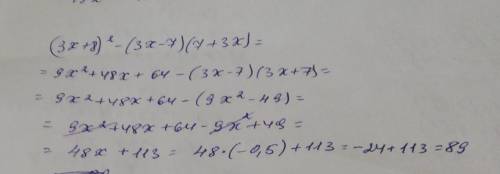 (3x+8)² - (3x-7)(7+3x) =
= 9x² + 48x + 64 - (3x-7)(3x+7) =
= 9x² + 48x + 64 - (9x² - 49) =
= 9x² + 48x + 64 - 9x² + 49 =
= 48x + 113 = 48·(-0,5) + 113 = -24 + 113 = 89